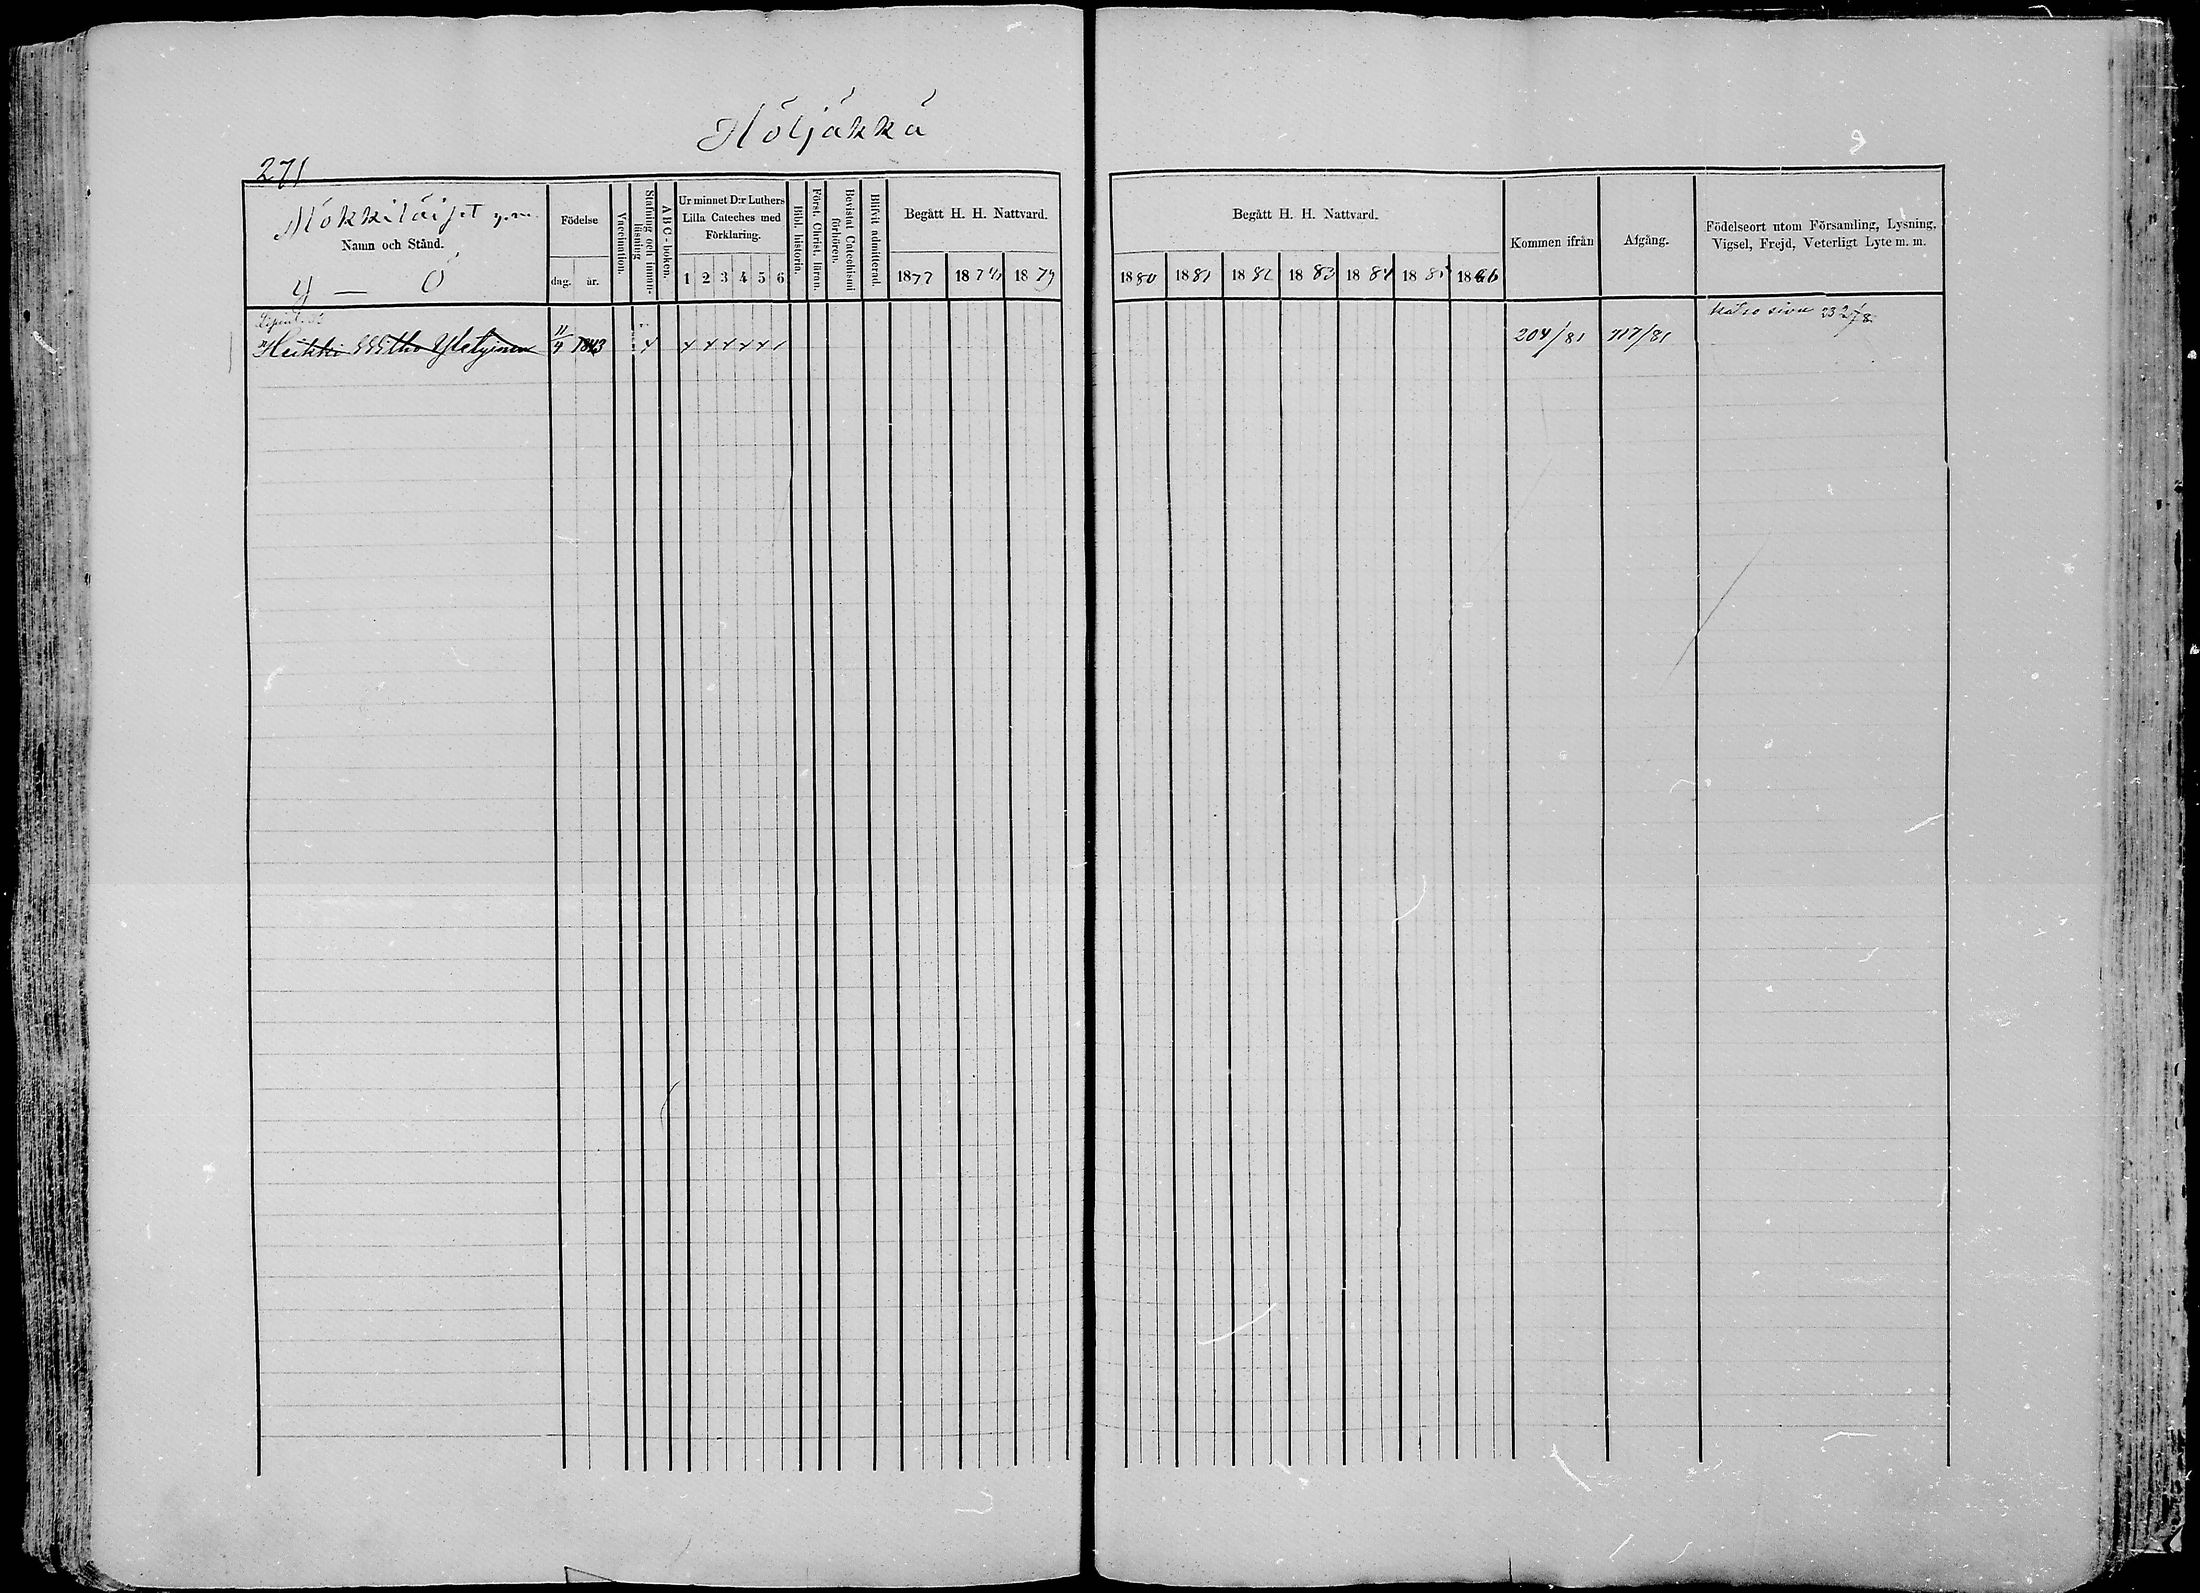 Höljäkkä
271
Mökkiläiset y.m.
Namn och Stånd.
y — Ö
Födelse
dag. år.
Vaccination.
Stafning och innan-
läsning
ABC-boken.
Ur minnet D:r Luthers
Lilla Cateches med
Förklaring.
1 2 3 4 5 6
Bibl. historia.
Först. Christ. läran.
Bevistat Catechismi
förhören.
Blifvit admitterad.
Begått H. H. Nattvard.
1877 1878 1879
Begått H. H. Nattvard.
1880 1881 1882 1883 1884 1885 1886
Kommen ifrån
Afgång.
Födelseort utom Församling, Lysning,
Vigsel, Frejd, Veterligt Lyte m. m.
Heikki 11/4 1843 204/81 717/81
katso sivu 232